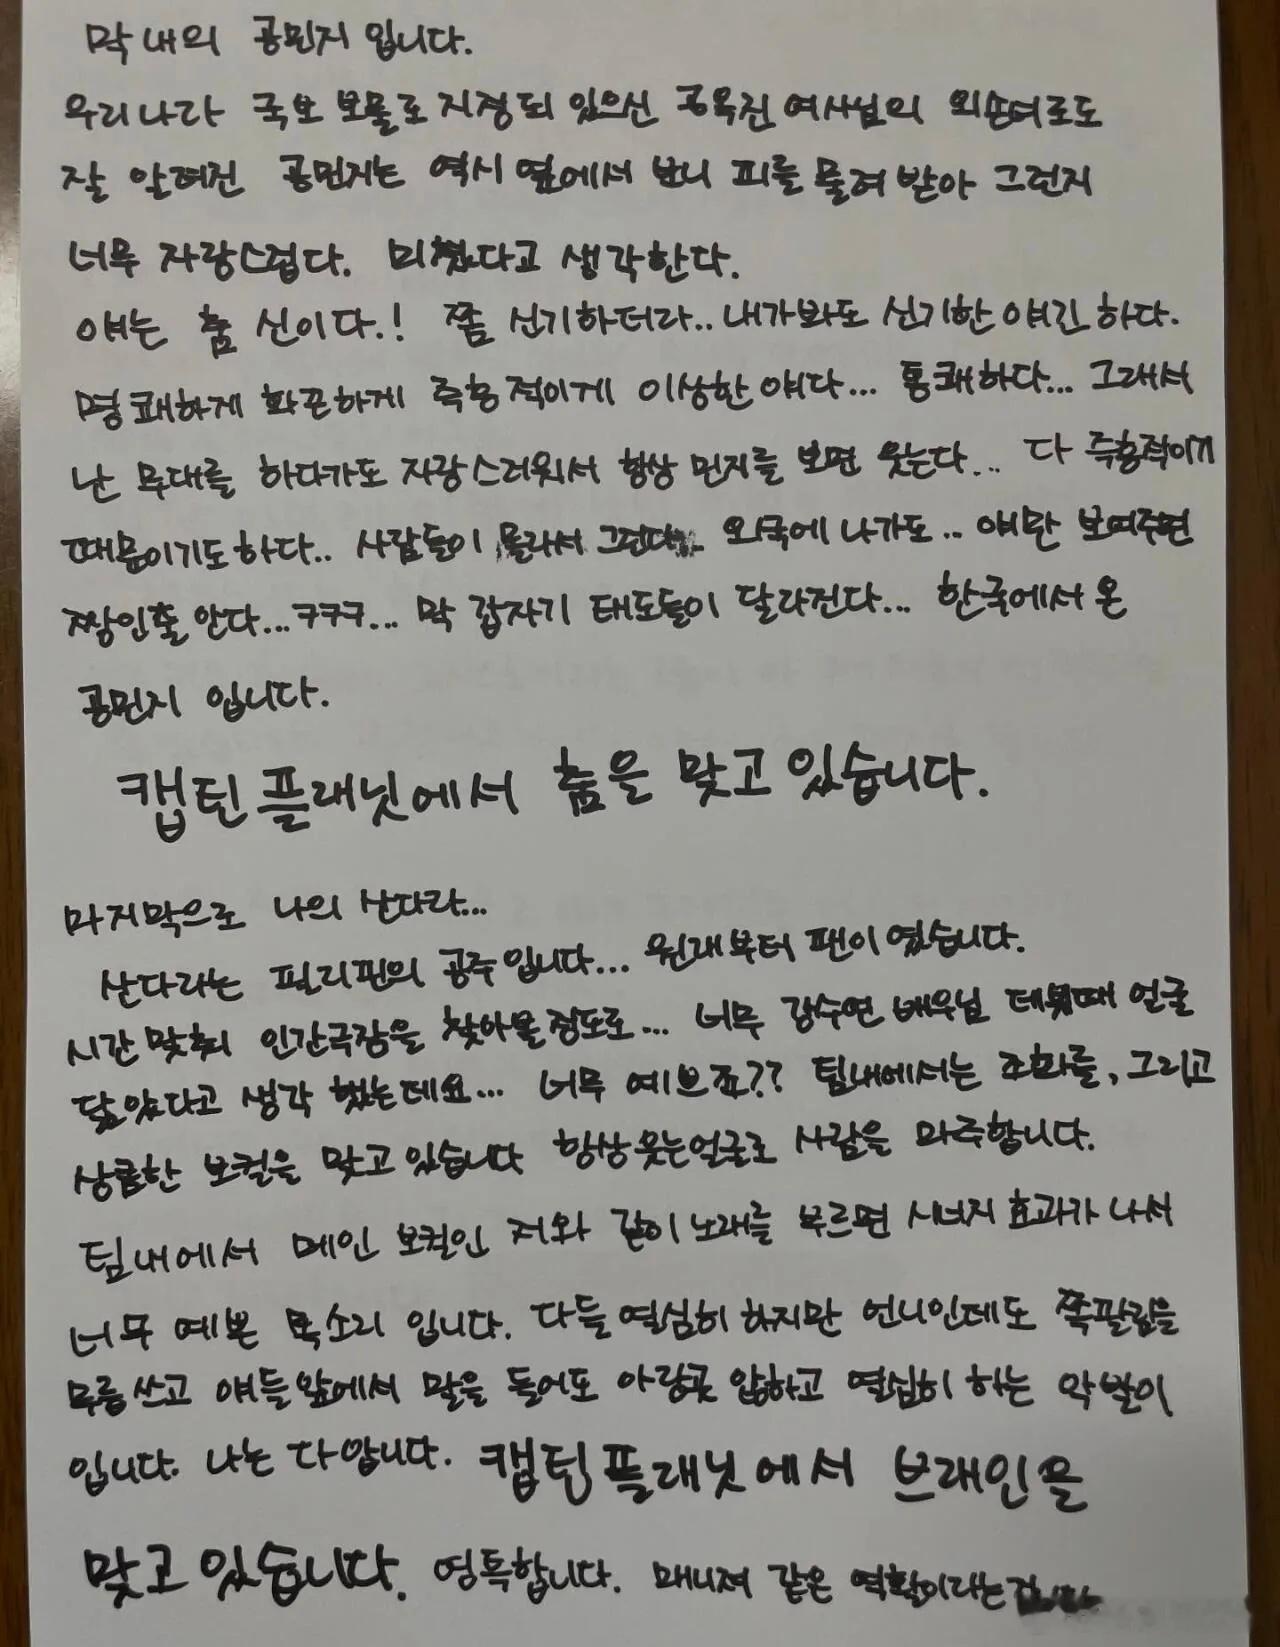 막내의 공민지 입니다.
우리나라 국보 보물로 지정되 있으신 공옥진 여사님의 외손녀로도
잘 알려진 공민지는 역시 옆에서 보니 피를 물려 받아 그런지
너무 자랑스럽다. 미쳤다고 생각한다.
얘는 춤 신이다.! 쫌 신기하더라.. 내가봐도 신기한 얘긴 하다.
명쾌하게 화끈하게 즉흥적이게 이상한 얘다... 통쾌하다... 그래서
난 무대를 하다가도 자랑스러워서 항상 민지를 보면 웃는다... 다 즉흥적이기
때문이기도하다.. 사람들이 몰라서 그런다.. 외국에 나가도.. 얘만 보여주면
짱인줄 안다...ㅋㅋㅋ... 막 갑자기 태도들이 달라진다... 한국에서 온
공민지 입니다.
캡틴플래닛에서 춤을 맞고있습니다.
마지막으로 나의 산다라...
산다라는 필리핀의 공주입니다... 원래부터 팬이였습니다.
시간맞춰 인간극장을 찾아볼정도로... 너무 강수연 배우님 데뷔때 얼굴
닮았다고 생각 했는데요... 너무 예쁘죠?? 팀내에서는 조화를, 그리고
상큼한 보컬을 맞고있습니다 항상웃는얼굴로 사람을 마주합니다.
팀내에서 메인 보컬인 저와 같이 노래를 부르면 시너지 효과가 나서
너무 예쁜 목소리 입니다. 다들 열심히 하지만 언니인데도 쪽팔림을
무릎쓰고 얘들앞에서 말을 들어도 아랑곳 않하고 열심히 하는 악발이
입니다. 나는 다 압니다. 캡틴플래닛에서 브레인을
맞고있습니다. 영특합니다. 매니져 같은 역활이라는겁니다